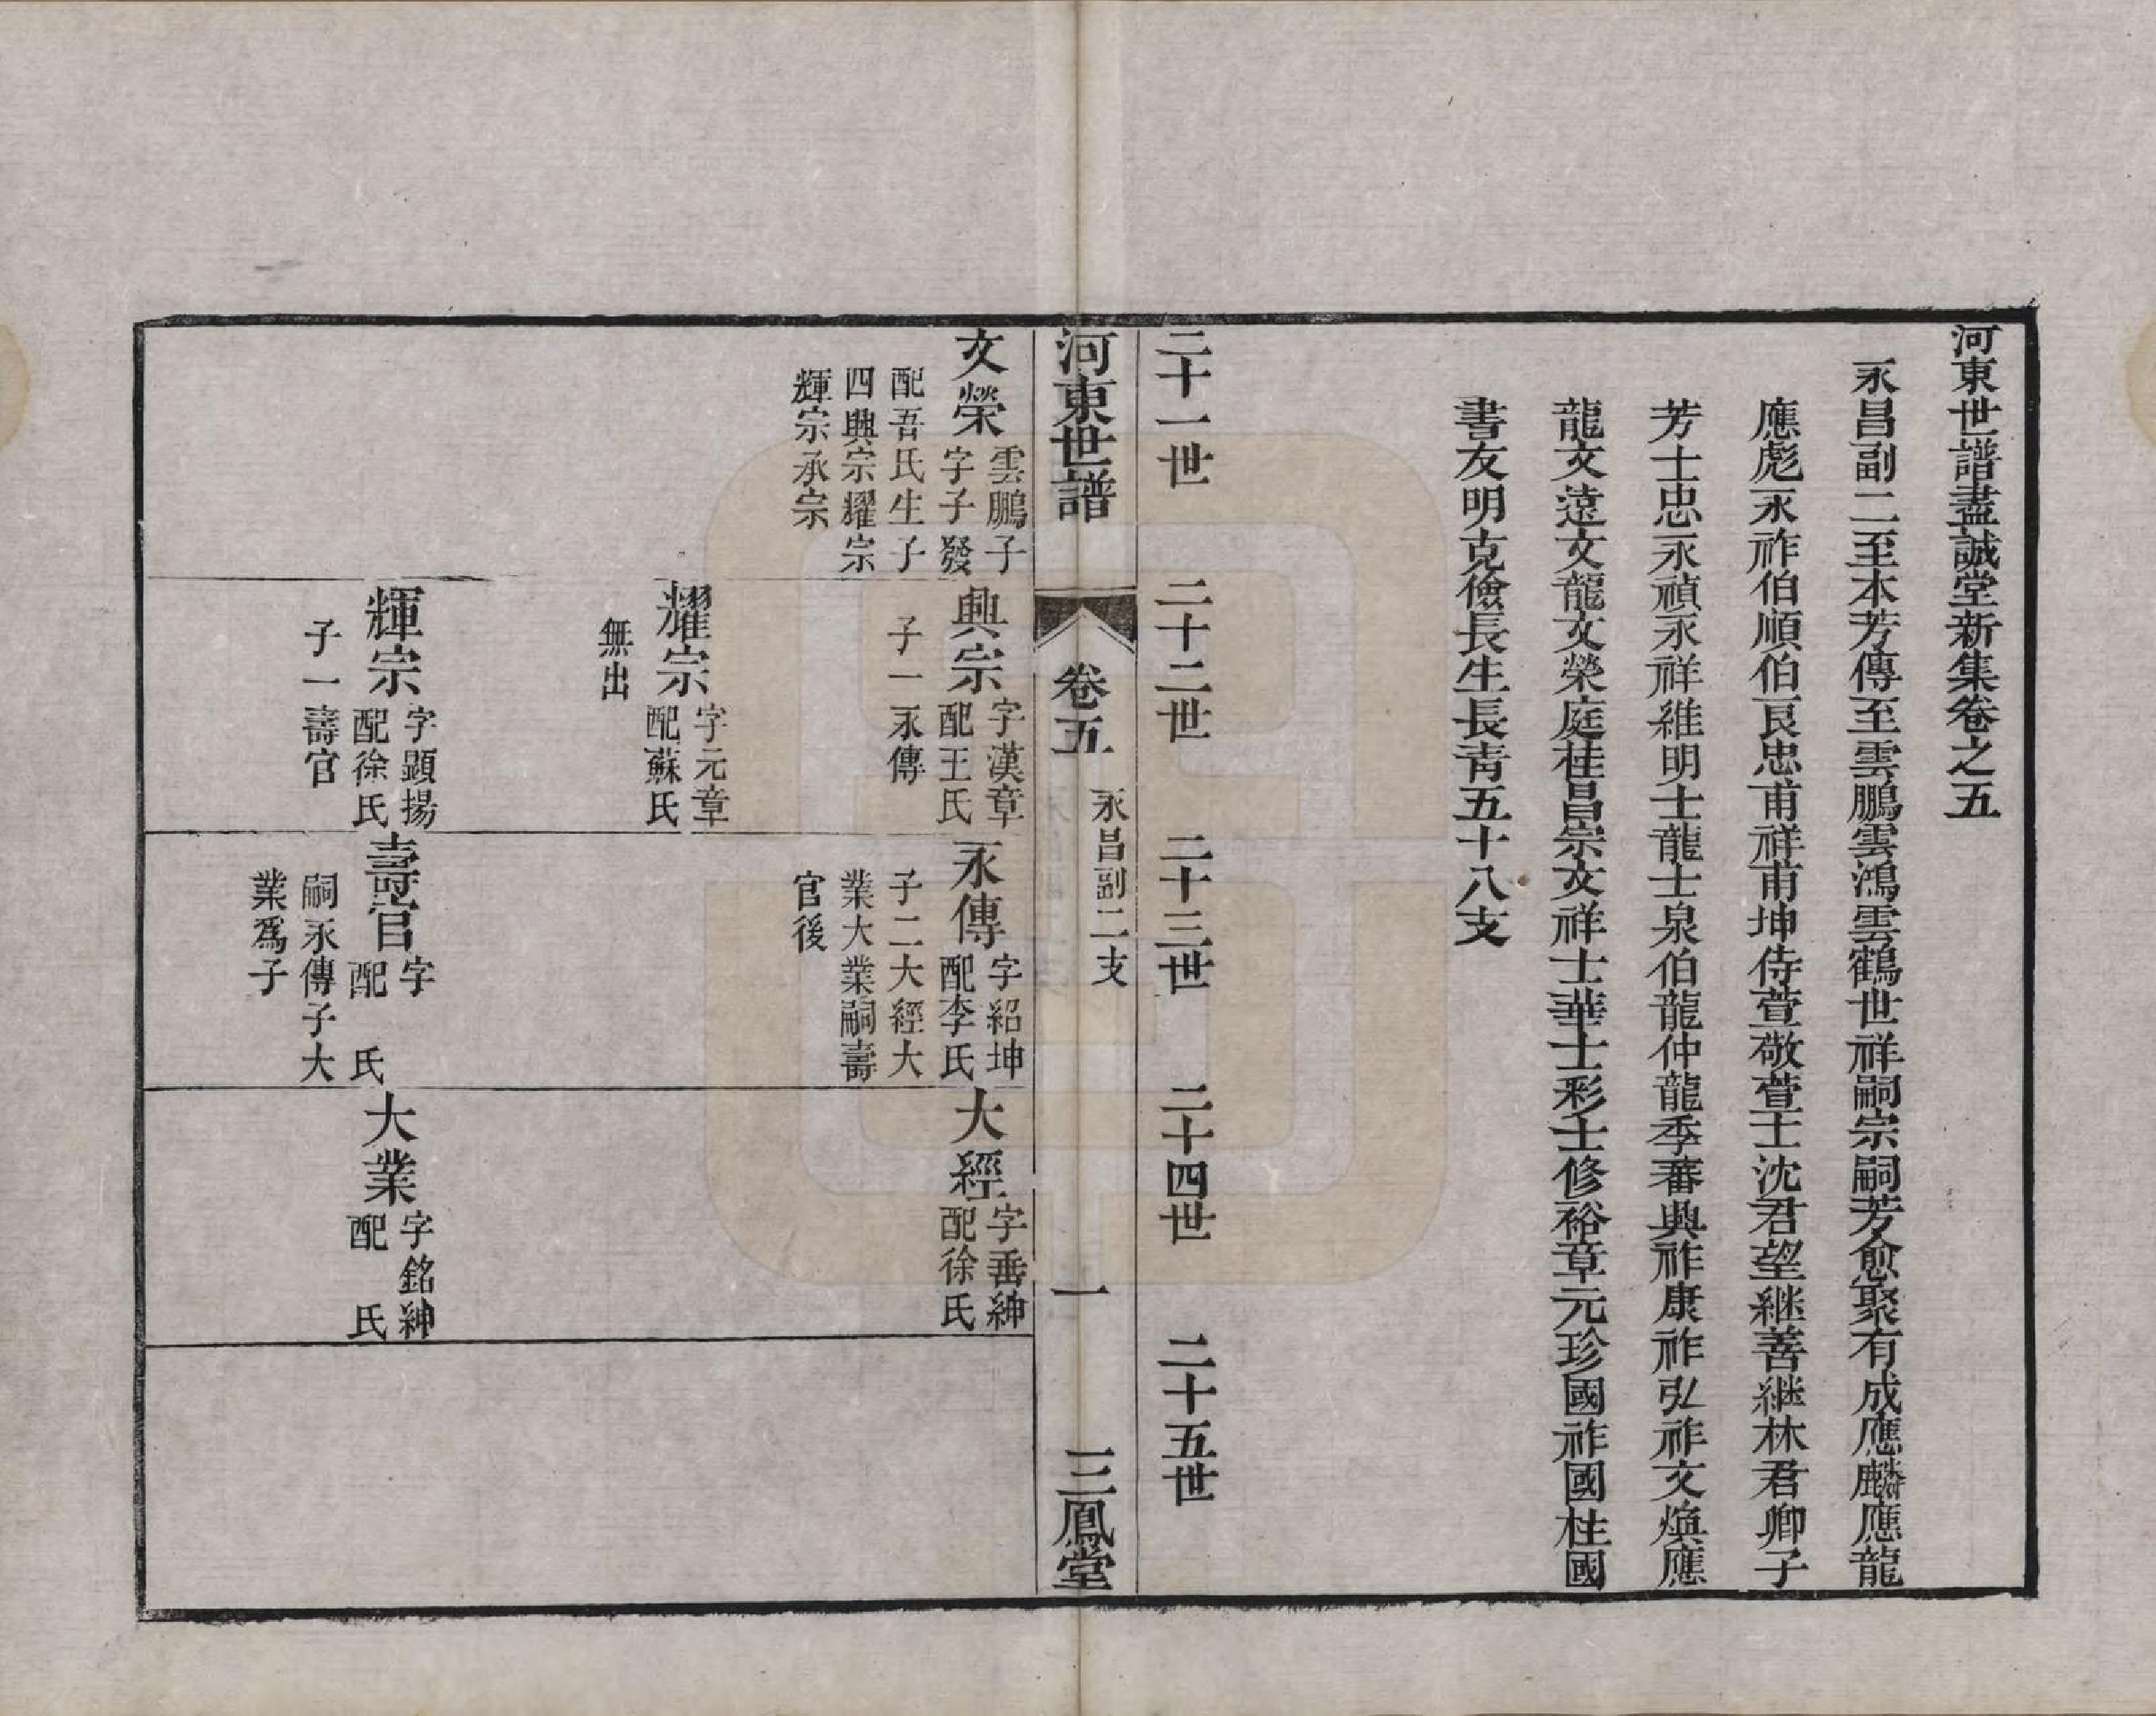 河東世譜盡誠堂新集卷之五
永昌副二至本芳傳至雲鵬雲鴻雲鶴世祥嗣宗嗣芳愈聚有成應麟應龍
應彪永祚伯順伯良忠甫祥甫坤侍萱敬萱士沈君望継善継林君卿子
芳士忠永禎永祥維明士龍士泉伯龍仲龍季蕃興祚康祚弘祚文煥應
龍文遠文龍文榮庭桂昌宗文祥士華士彩士修裕章元珍國祚國柱國
書友明克儉長生長青五十八支
二十一世
二十二世
二十三世
二十四世
二十五世
河東世譜
卷五
永昌副二支
一
三鳳堂
文榮
雲鵬子
字子發
配吾氏生子
四興宗耀宗
輝宗承宗
興宗
字漢章
配王氏
子一永傳
耀宗
字元章
配蘇氏
無出
輝宗
字顕揚
配徐氏
子一壽官
永傳
字紹坤
配李氏
子二大經大
業大業嗣壽
官後
壽官
字
配 氏
嗣永傳子大
業爲子
大經
字垂紳
配徐氏
大業
字銘紳
配 氏